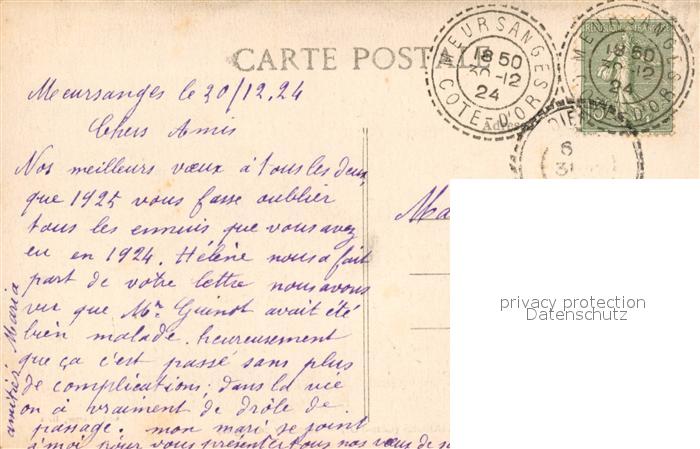 CARTE POSTALE
MEURSANGES
18 50
30-12
24
COTE-D'OR
MEURSANGES
18 50
30-12
24
COTE-D'OR
6
31
Adresse
Meursanges le 30/12.24
Chers Amis
Nos meilleurs vœux à tous les deux,
que 1925 vous fasse oublier
tous les ennuis que vous avez
eu en 1924. Hélène nous a fait
part de votre lettre nous avons
vu que Mr Guinot avait été
bien malade. heureusement
que ça c'est passé sans plus
de complications, dans la vie
on à vraiment de drôle de
passage. mon mari se joint
à moi pour vous présenter tous nos vœux de
amitiés Maria
Ma
privacy protection
Datenschutz